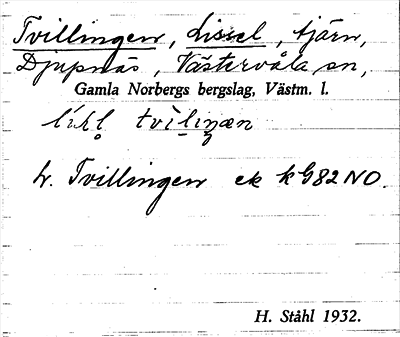 Tvillingen, Lissel, tjärn,
Djupnäs, Västervåla sn,
Gamla Norbergs bergslag, Västm. l.
tvìlinæn
hr. Tvillingen ek kG82NO.
H. Ståhl 1932.